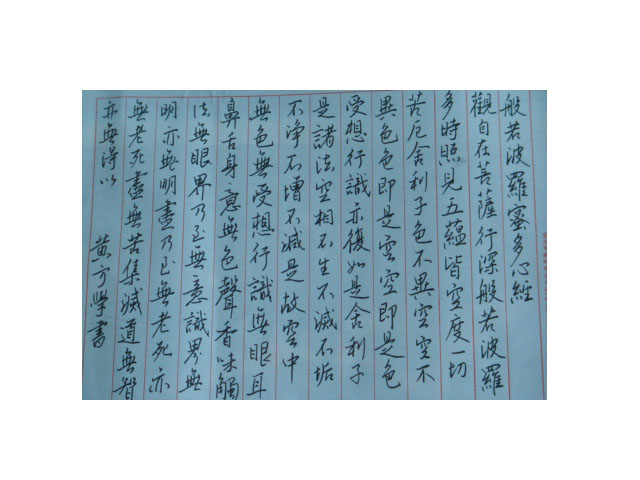 般若波羅蜜多心經
觀自在菩薩行深般若波羅
多時照見五蘊皆空度一切
苦厄舍利子色不異空空不
異色色即是空空即是色
受想行識亦復如是舍利子
是諸法空相不生不滅不垢
不净不增不減是故空中
無色無受想行識無眼耳
鼻舌身意無色聲香味觸
法無眼界乃至無意識界無
明亦無明盡乃至無老死亦
無老死盡無苦集滅道無智
亦無得以
黄方學書